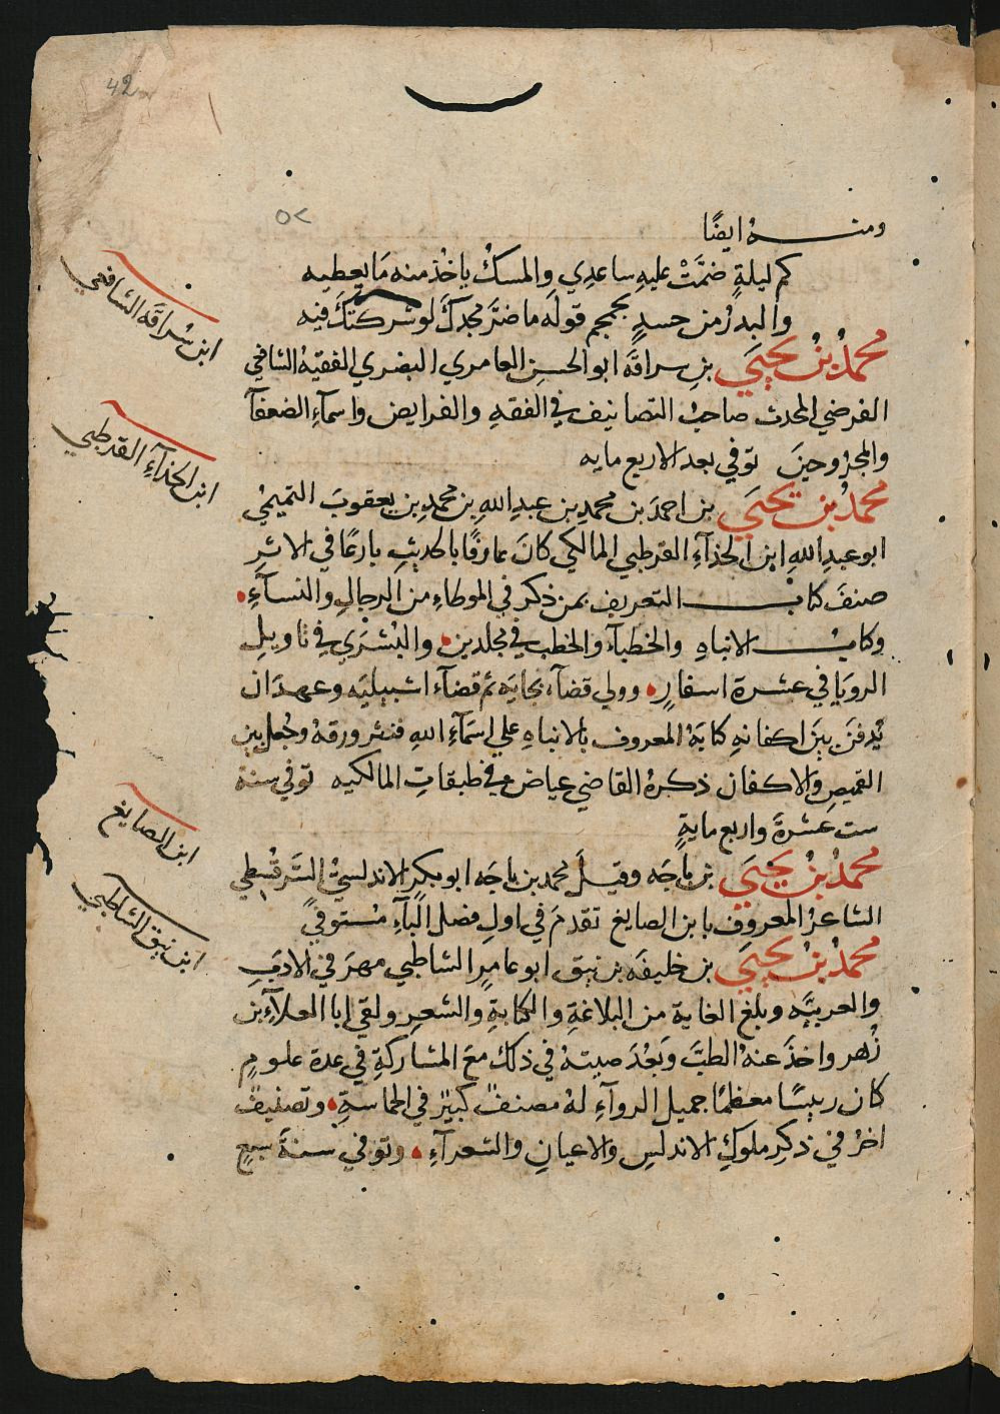 42
٥٢
ومنه ايضًا
كم ليلةٍ ضمَّتْ عليهِ ساعدِي والمسكُ ياخُذ منه مَا يعطيه
والبدرُ من حسدٍ يجمجم قولَه ما ضرَّ مجدكَ لو شركتكَ فيه
محمدُ بنُ يحيَي بنِ سراقَةَ ابو الحسنِ العامري البصْري الفقيهُ الشافعي
الفرضي المحدث صاحبُ التصانيف في الفقهِ والفرايض واسمآءِ الضعفآ
والمجرُوحينَ توُفي بعد الاربع مايه
محمدُ بن يحيَي بن احمدَ بن محمدِ بن عبدِ اللهِ بن محمدِ بن يعقوبَ التميميُ
ابو عبدِ اللهِ ابن الحذآءِ القرطبي المالكي كانَ عارفًا بالحديثِ بارعًا في الاثرِ
صنفَ كتابـــ التعريف بمن ذكر في الموطاءِ من الرجالِ والنسآءِ
وكتابُ الانباهِ والخطبآءِ والخطب في مجلدين والبُشرَي في تاويلِ
الرويَا في عشرة اسفارٍ وولي قضآءَ بجايَه ثم قضآءَ اشبيليَه وعهدَ ان
يُدفنَ بينَ اكفانهِ كتابَهُ المعروف بالانباهِ علي اسمَآءِ اللهِ فنثر ورقهُ وجُعل بين
القميصِ والاكفان ذكرهُ القاضي عياض في طبقاتِ المالكيه توُفي سنة
ست عَشرةَ واربع مايةٍ
محمدُ بنُ يحيَي بن باجَه وقيلَ محمد بن باجَه ابو بكرٍ الاندلسيُّ السَّرقُسطي
الشاعرُ المعروف بابن الصايغ تقدمَ في اولِ فضل البآءِ مُستوفيً
محمدُ بنُ يحيَي بن خليفَه بن نيق ابو عامرٍ الشاطبي مهرَ في الادبِ
والعربيَّه وبلغَ الغاية من البلاغةِ والكتابةِ والشعرِ ولقي ابا العلآءِ بن
زُهر واخذَ عنهُ الطبَّ وبَعُدَ صيتهُ في ذلكَ معَ المشاركةِ في عدة علومٍ
كان رييسًا معظمًا جميل الروآءِ لهُ مصنفٌ كبيرٌ في الحماسةِ وتصنيفٌ
اخرُ في ذكرِ ملوكِ الاندلسِ والاعيانِ والشعرآءِ وتوُفي سنةَ سبعٍ
ابن سُراقَه الشافعي
ابن الحذآءِ القرطبي
ابن الصايغ
ابن نيق الشاطبي